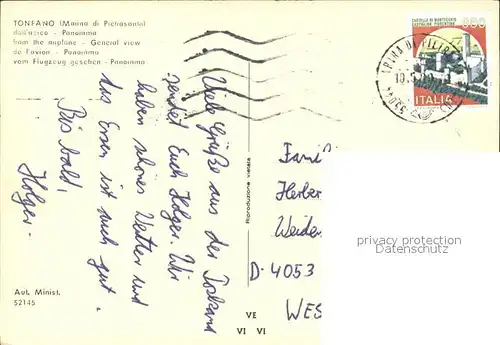 TONFANO (Marina di Pietrasanta)
dall'aereo - Panorama
from the airplane - General view
de l'avion - Panorama
vom Flugzeug gesehen - Panorama
Viele Grüße aus der Toskana
sendet Euch Holger. Wir
haben schönes Wetter und
das Essen ist auch gut.
Bis bald,
Holger.
Aut. Minist.
52145
Riproduzione vietata
VE
VI VI
CASTELLO DI MONTECCHIO
CASTIGLION FIORENTINO
ITALIA
Herber
Weiden
D-4053
WES
privacy protection
Datenschutz